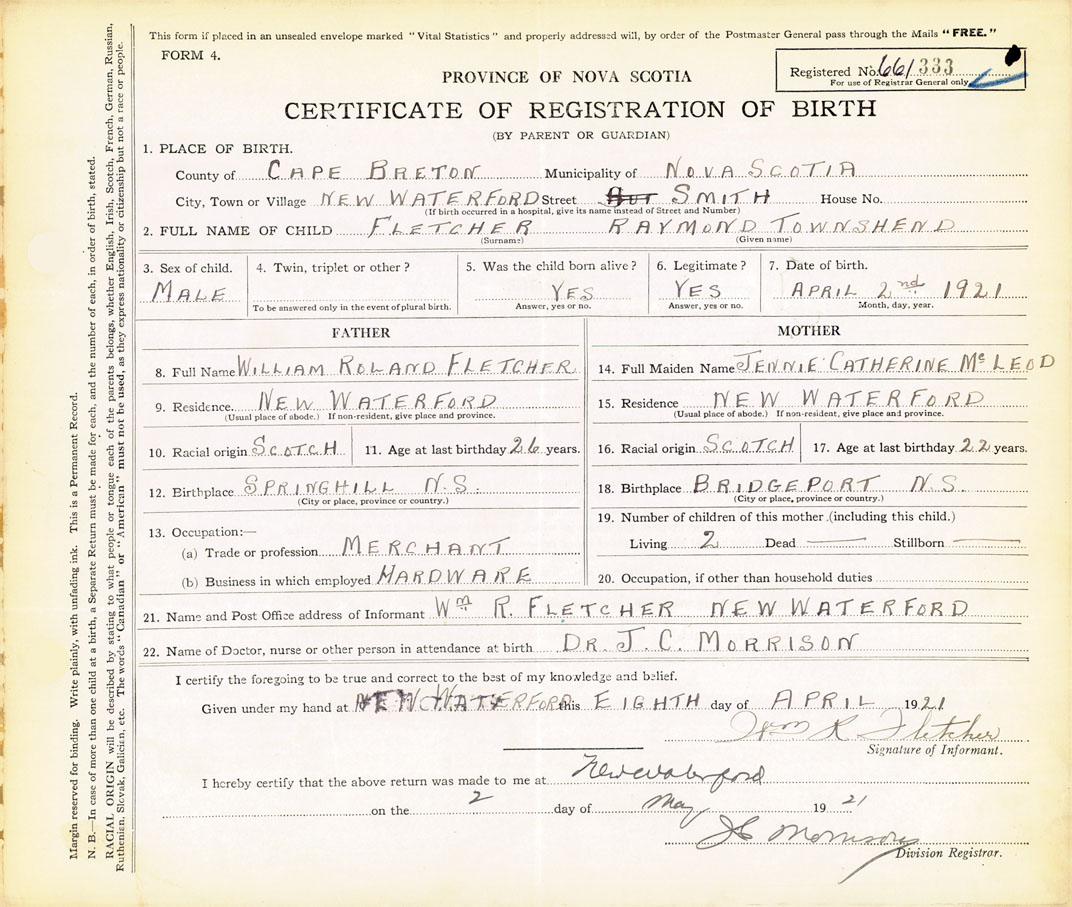 This form if placed in an unsealed envelope marked "Vital Statistics" and properly addressed will, by order of the Postmaster General pass through the Mails "FREE."
FORM 4.
Registered No. 661333
For use of Registrar General only
PROVINCE OF NOVA SCOTIA
CERTIFICATE OF REGISTRATION OF BIRTH
(BY PARENT OR GUARDIAN)
1. PLACE OF BIRTH.
County of CAPE BRETON Municipality of NOVA SCOTIA
City, Town or Village NEW WATERFORD Street SMITH House No.
(If birth occurred in a hospital, give its name instead of Street and Number)
2. FULL NAME OF CHILD FLETCHER RAYMOND TOWNSHEND
(Surname) (Given name)
3. Sex of child. 4. Twin, triplet or other? 5. Was the child born alive? 6. Legitimate? 7. Date of birth.
MALE YES YES APRIL 2nd 1921
To be answered only in the event of plural birth. Answer, yes or no. Answer, yes or no. Month, day, year.
FATHER
8. Full Name WILLIAM ROLAND FLETCHER
9. Residence. NEW WATERFORD
(Usual place of abode.) If non-resident, give place and province.
10. Racial origin SCOTCH 11. Age at last birthday 26 years.
12. Birthplace SPRINGHILL N.S.
(City or place, province or country.)
13. Occupation:—
(a) Trade or profession MERCHANT
(b) Business in which employed HARDWARE
MOTHER
14. Full Maiden Name JENNIE CATHERINE McLEOD
15. Residence NEW WATERFORD
(Usual place of abode.) If non-resident, give place and province.
16. Racial origin SCOTCH 17. Age at last birthday 22 years.
18. Birthplace BRIDGEPORT N.S.
(City or place, province or country.)
19. Number of children of this mother (including this child.)
Living 2 Dead — Stillborn —
20. Occupation, if other than household duties
21. Name and Post Office address of Informant Wm R. FLETCHER NEW WATERFORD
22. Name of Doctor, nurse or other person in attendance at birth DR. J. C. MORRISON
I certify the foregoing to be true and correct to the best of my knowledge and belief.
Given under my hand at NEW WATERFORD this EIGHTH day of APRIL 1921
Wm R Fletcher
Signature of Informant.
I hereby certify that the above return was made to me at New Waterford
on the 2 day of May 1921
JC Morrison
Division Registrar.
Margin reserved for binding. Write plainly, with unfading ink. This is a Permanent Record.
N. B.—In case of more than one child at a birth, a Separate Return must be made for each, and the number of each, in order of birth, stated.
RACIAL ORIGIN will be described by stating to what people or tongue each of the parents belongs, whether English, Irish, Scotch, French, German, Russian,
Ruthenian, Slovak, Galician, etc. The words "Canadian" or "American" must not be used, as they express nationality or citizenship but not a race or people.